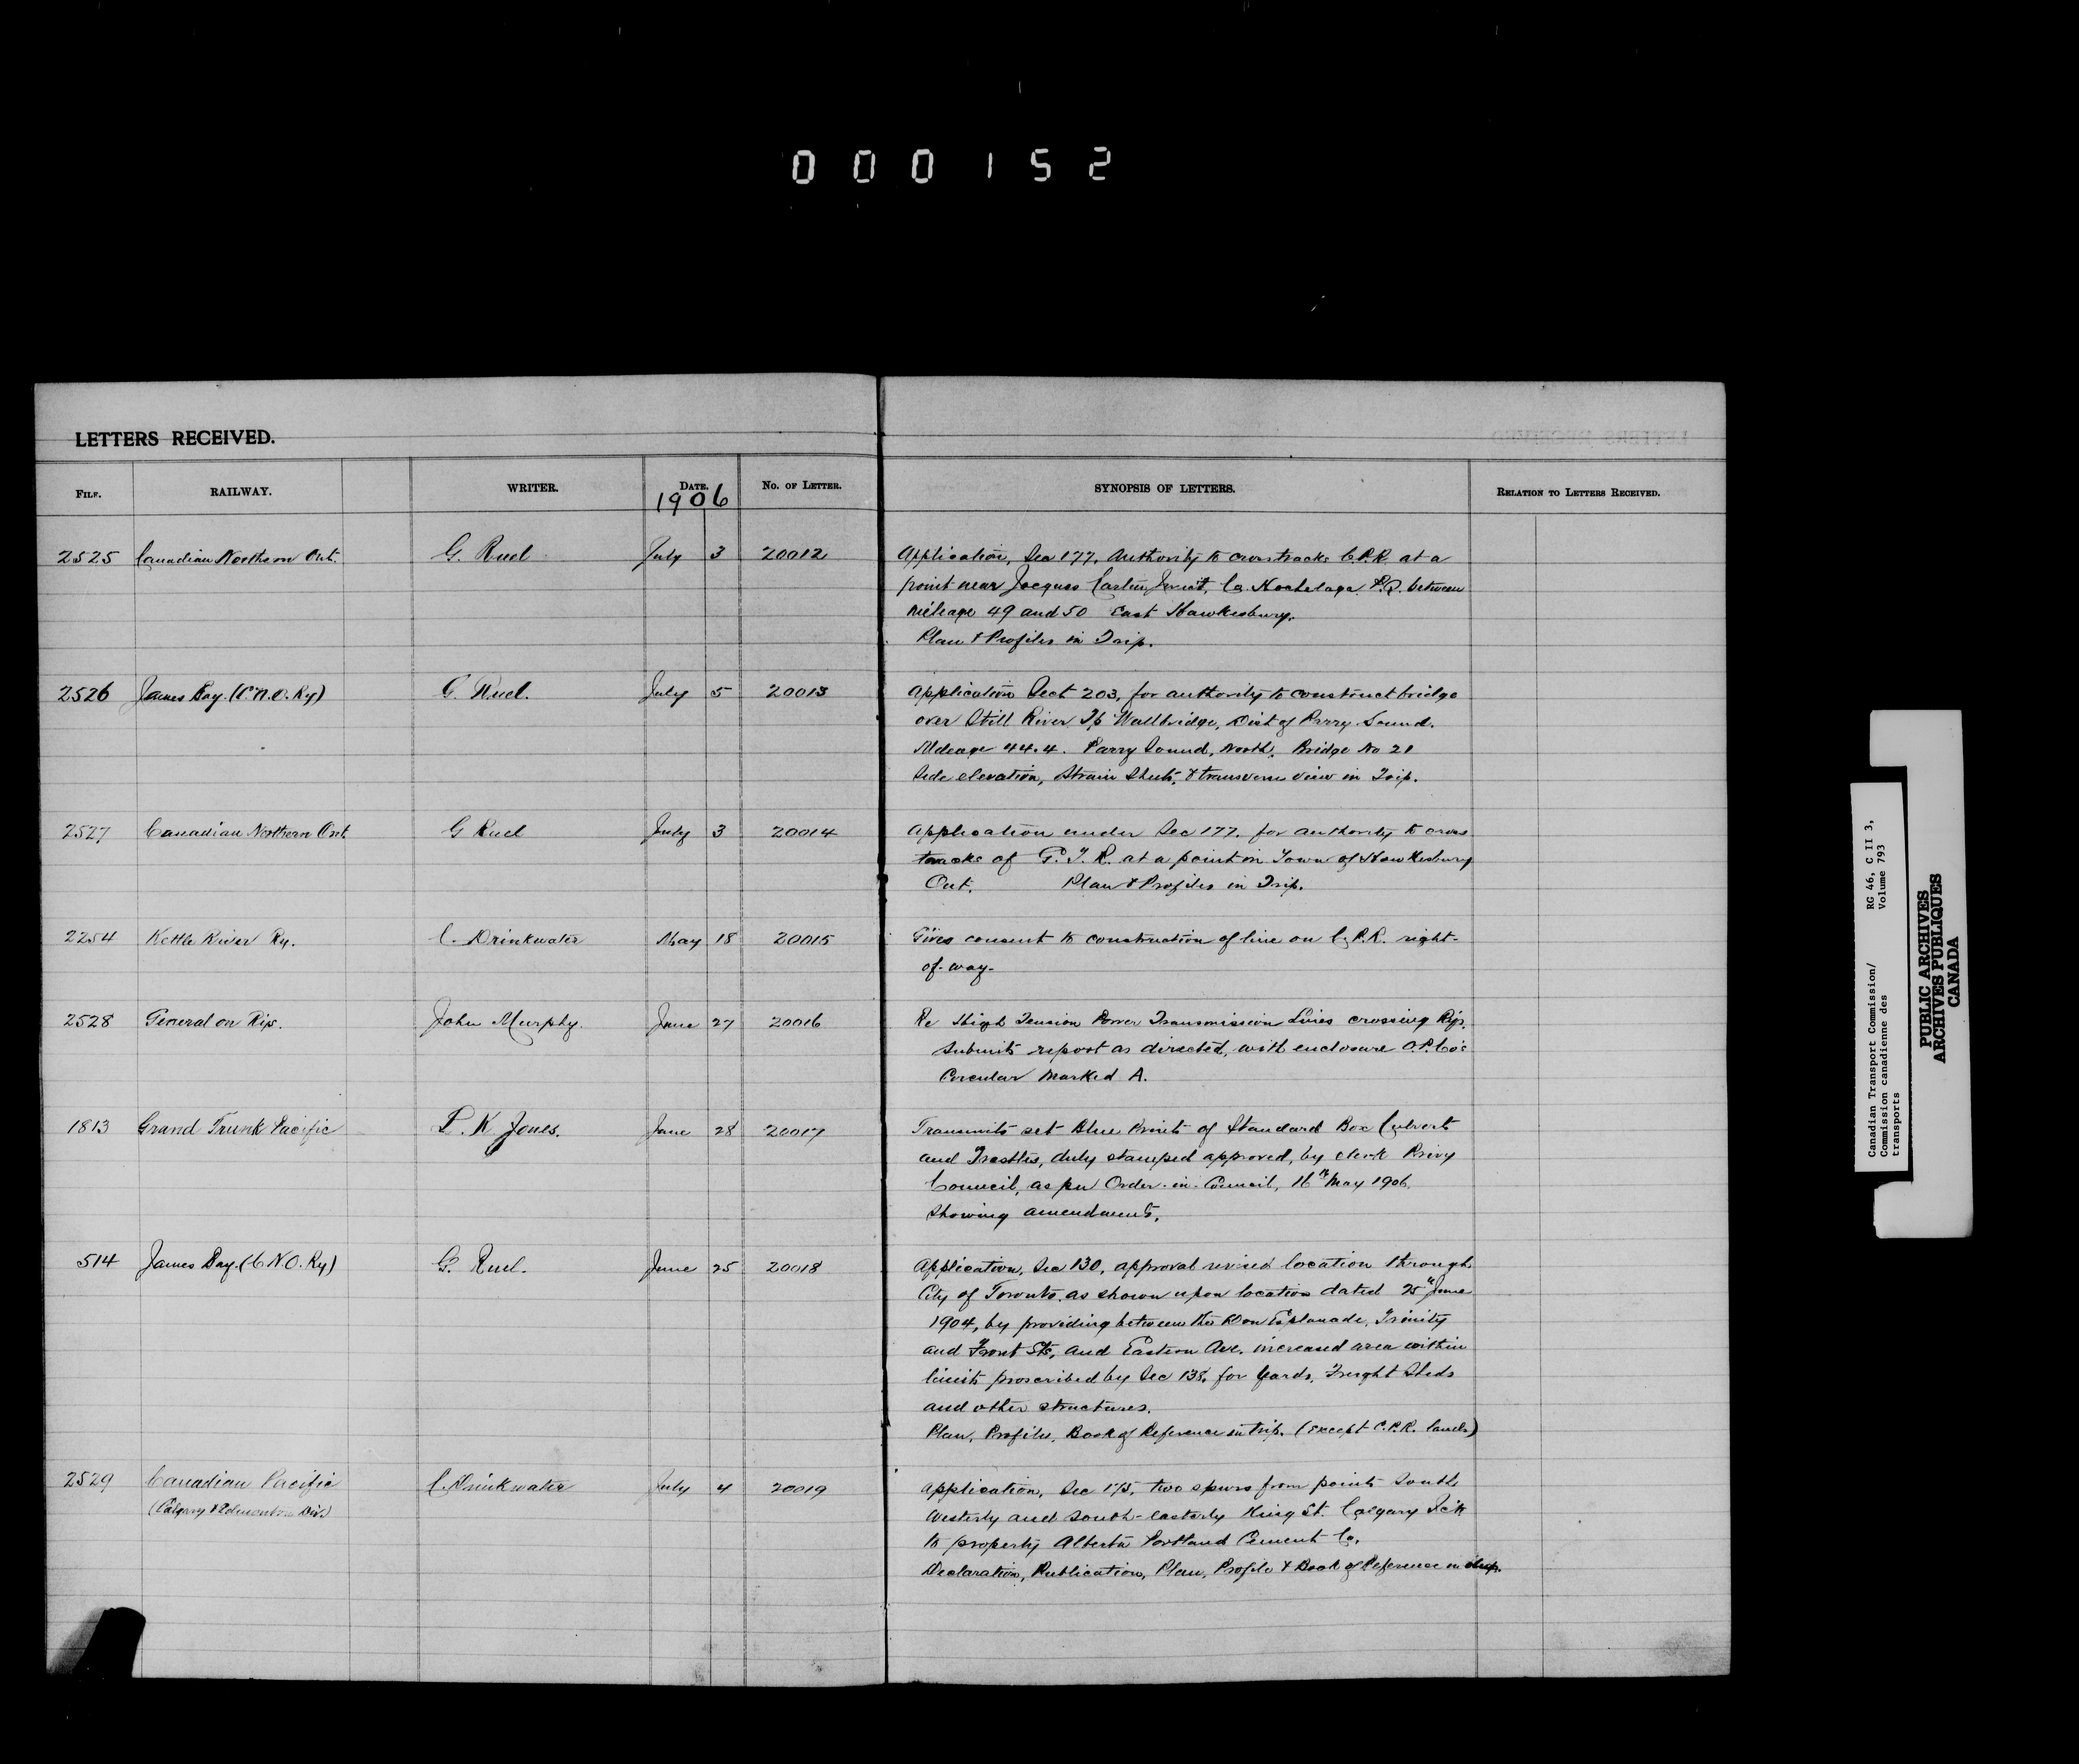 000152
LETTERS RECEIVED.
FILE. RAILWAY. WRITER. DATE. 1906 NO. OF LETTER. SYNOPSIS OF LETTERS. RELATION TO LETTERS RECEIVED.
2525 Canadian Northern Ont. G. Ruel July 3 20012 Application, Sec 177, Authority to cross tracks C.P.R. at a
point near Jacques Cartier Junct, Co. Hochelaga P.Q. between
mileage 49 and 50 East Hawkesbury.
Plan & Profiles in Trip.
2526 James Bay (C.N.O. Ry) G. Ruel. July 5 20013 Application Sect 203, for authority to construct bridge
over Still River Tp Wallbridge, Dist of Parry Sound.
Mileage 44.4. Parry Sound, North. Bridge No 21
Side elevation, Strain Sheets, & transverse view in Trip.
2527 Canadian Northern Ont. G Ruel July 3 20014 Application under Sec 177. for authority to cross
tracks of G.T.R. at a point in Town of Hawkesbury
Ont. Plan & Profiles in Trip.
2254 Kettle River Ry. C. Drinkwater May 18 20015 Gives consent to construction of line on C.P.R. right-
of-way-
2528 General on Rys. John Murphy. June 27 20016 Re High Tension Power Transmission Lines crossing Rys.
Submits report as directed, with enclosure O.P. Co's
Circular Marked A.
1813 Grand Trunk Pacific P. K Jones. June 28 20017 Transmits set Blue Prints of Standard Box Culverts
and Trestles, duly stamped approved, by clerk Privy
Council, as per Order-in-Council, 16th May 1906.
Showing amendments.
514 James Bay. (C.N.O. Ry) G. Ruel. June 25 20018 Application, Sec 130, approval revised location through
City of Toronto, as shown upon location dated 25th June
1904, by providing between the Don Esplanade, Trinity
and Front Sts, and Eastern Ave. increased area within
limits proscribed by Sec 138, for Yards, Freight Sheds
and other structures.
Plan, Profile, Book of Reference in trip. (except C.P.R. lands)
2529 Canadian Pacific C. Drinkwater July 4 20019 Application, Sec 175, two spurs from points South
(Calgary & Edmonton Div.) Westerly and South-easterly King St. Calgary
to property Alberta Portland Cement Co.
Declaration, Publication, Plan, Profile & Book of Reference in dup.
Canadian Transport Commission/ RG 46, C II 3,
Commission canadienne des Volume 793
transports
PUBLIC ARCHIVES
ARCHIVES PUBLIQUES
CANADA